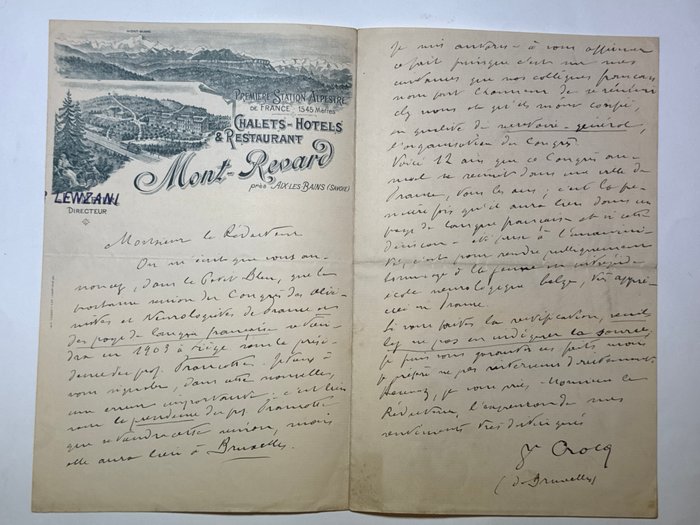 PREMIÈRE STATION ALPESTRE
DE FRANCE 1545 Mètres
CHALETS-HOTELS
& RESTAURANT
Mont-Revard
près AIX LES BAINS (SAVOIE)
LEWZANI
DIRECTEUR
Monsieur le Rédacteur
On m'écrit que vous an-
noncez, dans le Petit Bleu, que la
prochaine réunion du Congrès des alié-
nistes et Neurologistes de France et
des pays de langue française se tien-
dra en 1903 à Liège sous la prési-
dence du prof. Francotte. Je tiens à
vous signaler, dans cette nouvelle,
une erreur importante : c'est bien
sous la présidence du prof. Francotte
que se tiendra cette réunion, mais
elle aura lieu à Bruxelles.
Je suis autorisé à vous affirmer
ce fait puisque c'est sur mes
instances que nos collègues français
nous font l'honneur de se réunir
chez nous et qu'ils m'ont confié,
en qualité de secrétaire-général,
l'organisation du Congrès.
Voici 12 ans que ce Congrès an-
nuel se réunit dans une ville de
France, tous les ans ; c'est la pre-
mière fois qu'il aura lieu dans un
pays de langue française et si cette
décision a été prise à l'unanimi-
té, c'est pour rendre publiquement
hommage à la
école neurologique belge, très appré-
ciée en France.
Si vous faites la rectification, veuil-
lez ne pas en indiquer la source,
je puis vous garantir ces faits mais
je préfère ne pas
Recevez, je vous prie, Monsieur le
Rédacteur, l'expression de mes
sentiments très distingués
Dr Crocq
(de Bruxelles)